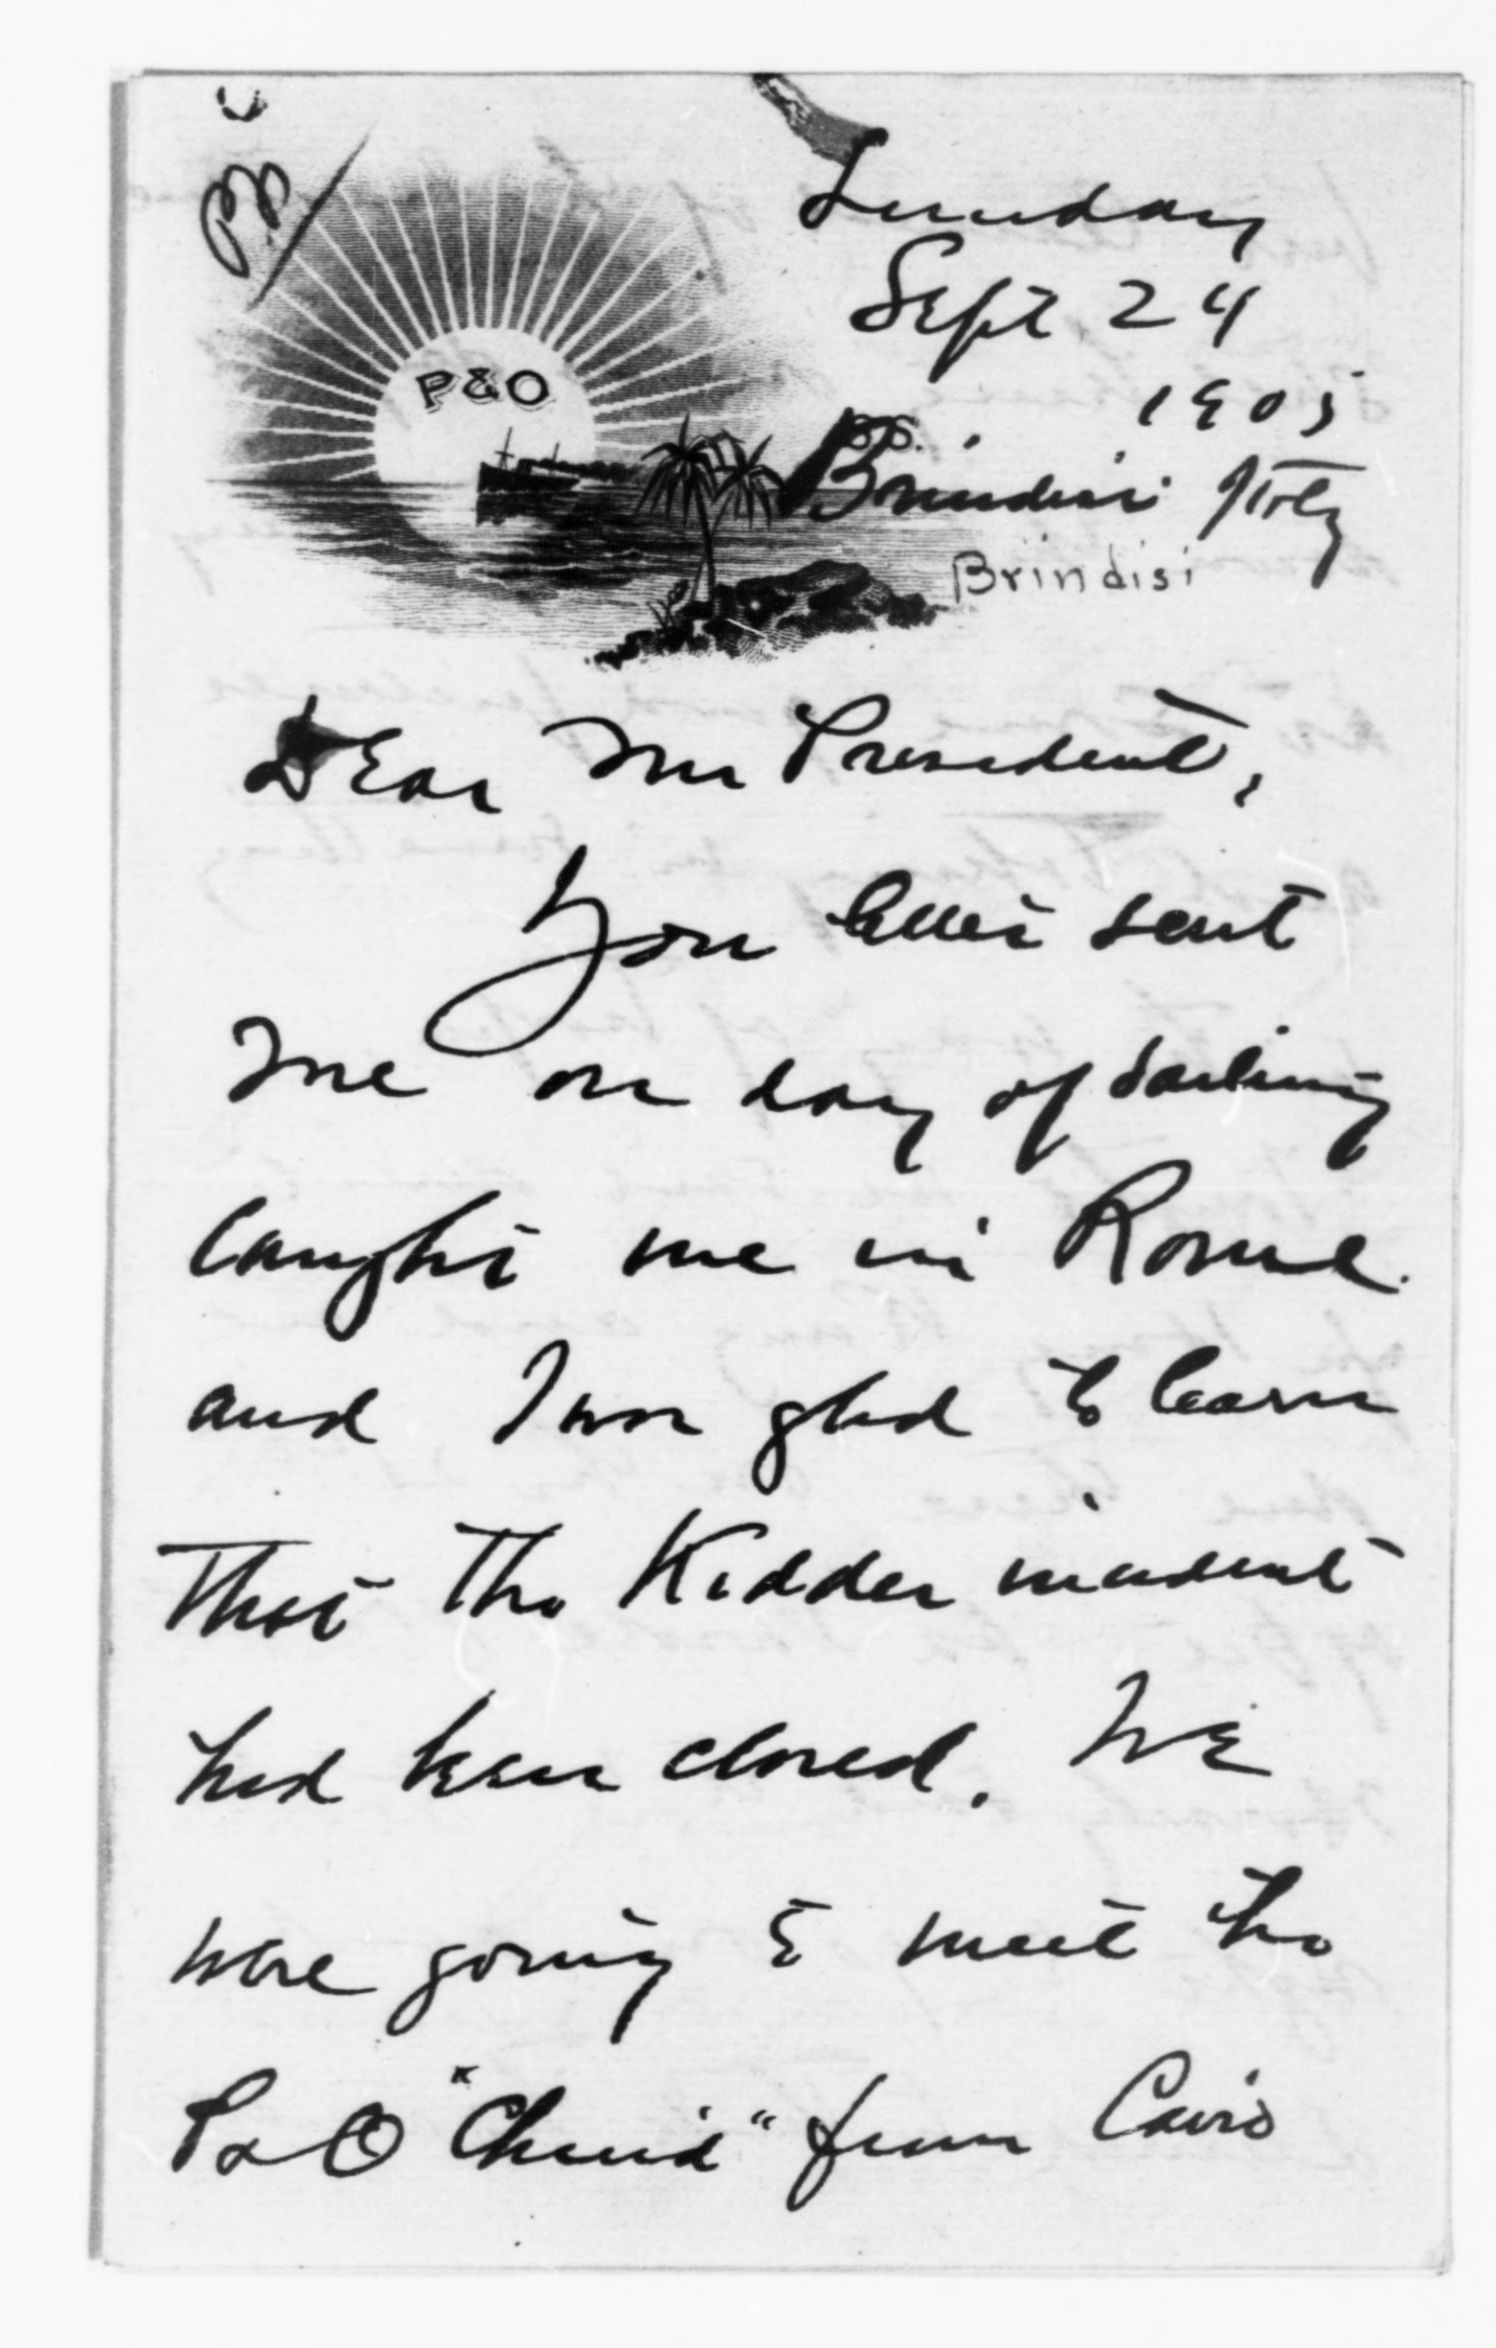 Sunday
Sept 24
1905
P&O
S.S.
Brindisi Italy
Brindisi
Dear Mr President,
Your letter sent
me on day of sailing
caught me in Rome.
and I was glad to learn
that the Kidder incident
had been closed. We
were going to meet the
P & O "China" from Cairo